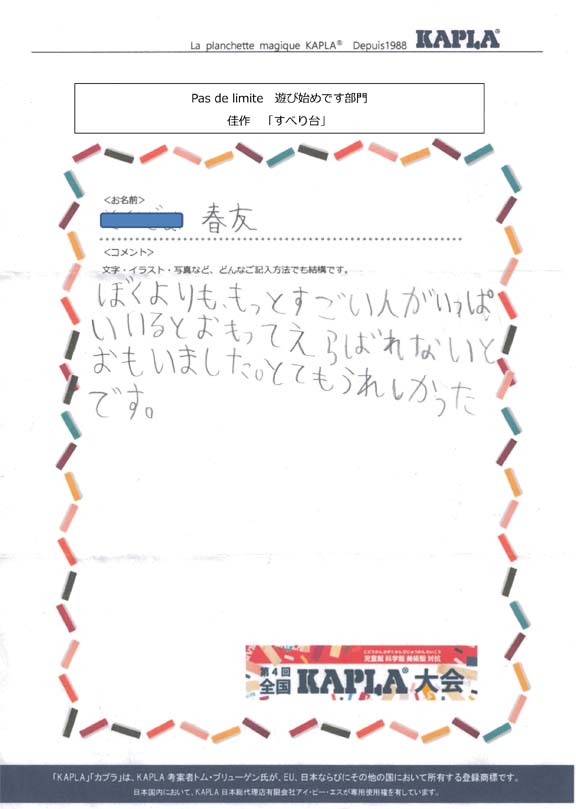 La planchette magique KAPLA® Depuis1988 KAPLA®
Pas de limite 遊び始めです部門
佳作 「すべり台」
<お名前>
春友
<コメント>
文字・イラスト・写真など、どんなご記入方法でも結構です。
ぼくよりも、もっとすごい人がいっぱ
いいるとおもってえらばれないと
おもいました。とてもうれしかった
です。
じどうかんかがくかんびじゅつかんたいこう
児童館 科学館 美術館 対抗
第4回
全国 KAPLA® 大会
「KAPLA」「カプラ」は、KAPLA 考案者トム・ブリューゲン氏が、EU、日本ならびにその他の国において所有する登録商標です。
日本国内において、KAPLA 日本総代理店有限会社アイ・ピー・エスが専用使用権を有しています。